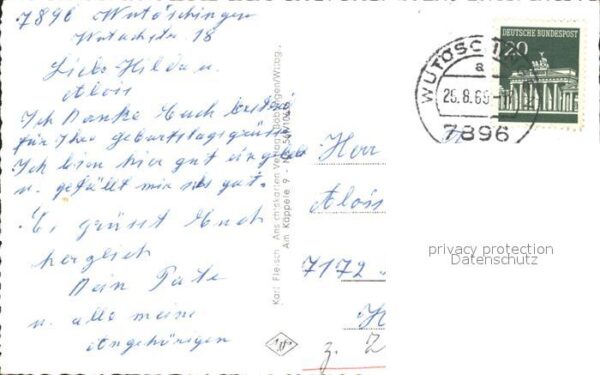 7896 Wutöschingen
Wutachstr. 18
Liebe Hilda u.
Alois
Ich Danke Euch
für Ihre Geburtstagsgrüße
Ich bin hier gut
u. gefällt mir gut.
Es grüsst Euch
herzlich
Dein Pate
u. alle meine
Angehörigen
Karl Fleisch, Ansichtskarten Verlag,
Am Käppele 9 - Nr.
Herr
Alois
7172
z. Z
DEUTSCHE BUNDESPOST
20
WUTÖSCHIN
a
25.8.69
7896
privacy protection
Datenschutz